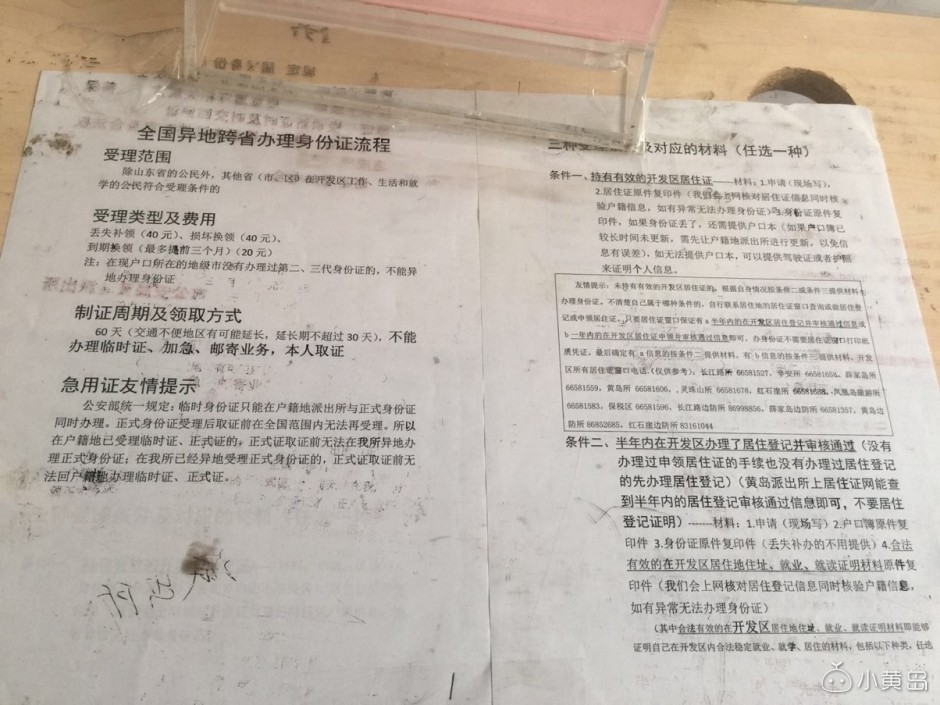 全国异地跨省办理身份证流程
受理范围
除山东省的公民外，其他省（市、区）在开发区工作、生活和就
学的公民符合受理条件的
受理类型及费用
丢失补领（40元）、损坏换领（40元）、
到期换领（最多提前三个月）（20元）
注：在现户口所在的地级市没有办理过第二、三代身份证的，不能异
地办理身份证
制证周期及领取方式
60天（交通不便地区有可能延长，延长期不超过30天），不能
办理临时证、加急、邮寄业务，本人取证
急用证友情提示
公安部统一规定：临时身份证只能在户籍地派出所与正式身份证
同时办理。正式身份证受理后取证前在全国范围内无法再受理。所以
在户籍地已受理临时证、正式证的，正式证取证前无法在我所异地办
理正式身份证；在我所已经异地受理正式身份证的，正式证取证前无
法回户籍地办理临时证、正式证。
三种受理 及对应的材料（任选一种）
条件一、持有有效的开发区居住证——材料：1.申请（现场写），
2.居住证原件复印件（我们会上网核对居住证信息同时核
验户籍信息，如有异常无法办理身份证）3.身份证原件复
印件，如果身份证丢了，还需提供户口本（如果户口簿已
较长时间未更新，需先让户籍地派出所进行更新，以免信
息有误差），如无法提供户口本，可以提供驾驶证或者护照
来证明个人信息。
友情提示：未持有有效的开发区居住证的，根据自身情况按条件二或条件三提供材料
办理身份证。不清楚自己属于哪种条件的，自行联系居住地的居住证窗口查询或做居住登
记或申领居住证。只要居住证窗口保证有a半年内的在开发区居住登记并审核通过信息或
b一年内的在开发区居住证申领并审核通过信息即可，办身份证不需要居住证窗口打印纸
质凭证。最后确定有a信息的按条件二提供材料，有b信息的按条件三提供材料。开发
区所有居住证窗口电话（仅供参考）：长江路所 66581527、辛安所 6658165 、薛家岛所
66581559，黄岛所 66581606，灵珠山所 66581678，红石崖所 66581588，凤凰岛旅游所
66581583，保税区 66581596，长江路边防所 86998856，薛家岛边防所 66581357，黄岛边
防所 86852685，红石崖边防所 83161044
条件二、半年内在开发区办理了居住登记并审核通过（没有
办理过申领居住证的手续也没有办理过居住登记
的先办理居住登记）（黄岛派出所上居住证网能查
到半年内的居住登记审核通过信息即可，不要居住
登记证明）------材料：1.申请（现场写）2.户口簿原件复
印件 3.身份证原件复印件（丢失补办的不用提供）4.合法
有效的在开发区居住地住址、就业、就读证明材料原件复
印件（我们会上网核对居住登记信息同时核验户籍信息，
如有异常无法办理身份证）
（其中合法有效的在开发区居住地住址、就业、就读证明材料即能够
证明自己在开发区内合法稳定就业、就学、居住的材料，包括以下种类，任选
小黄岛